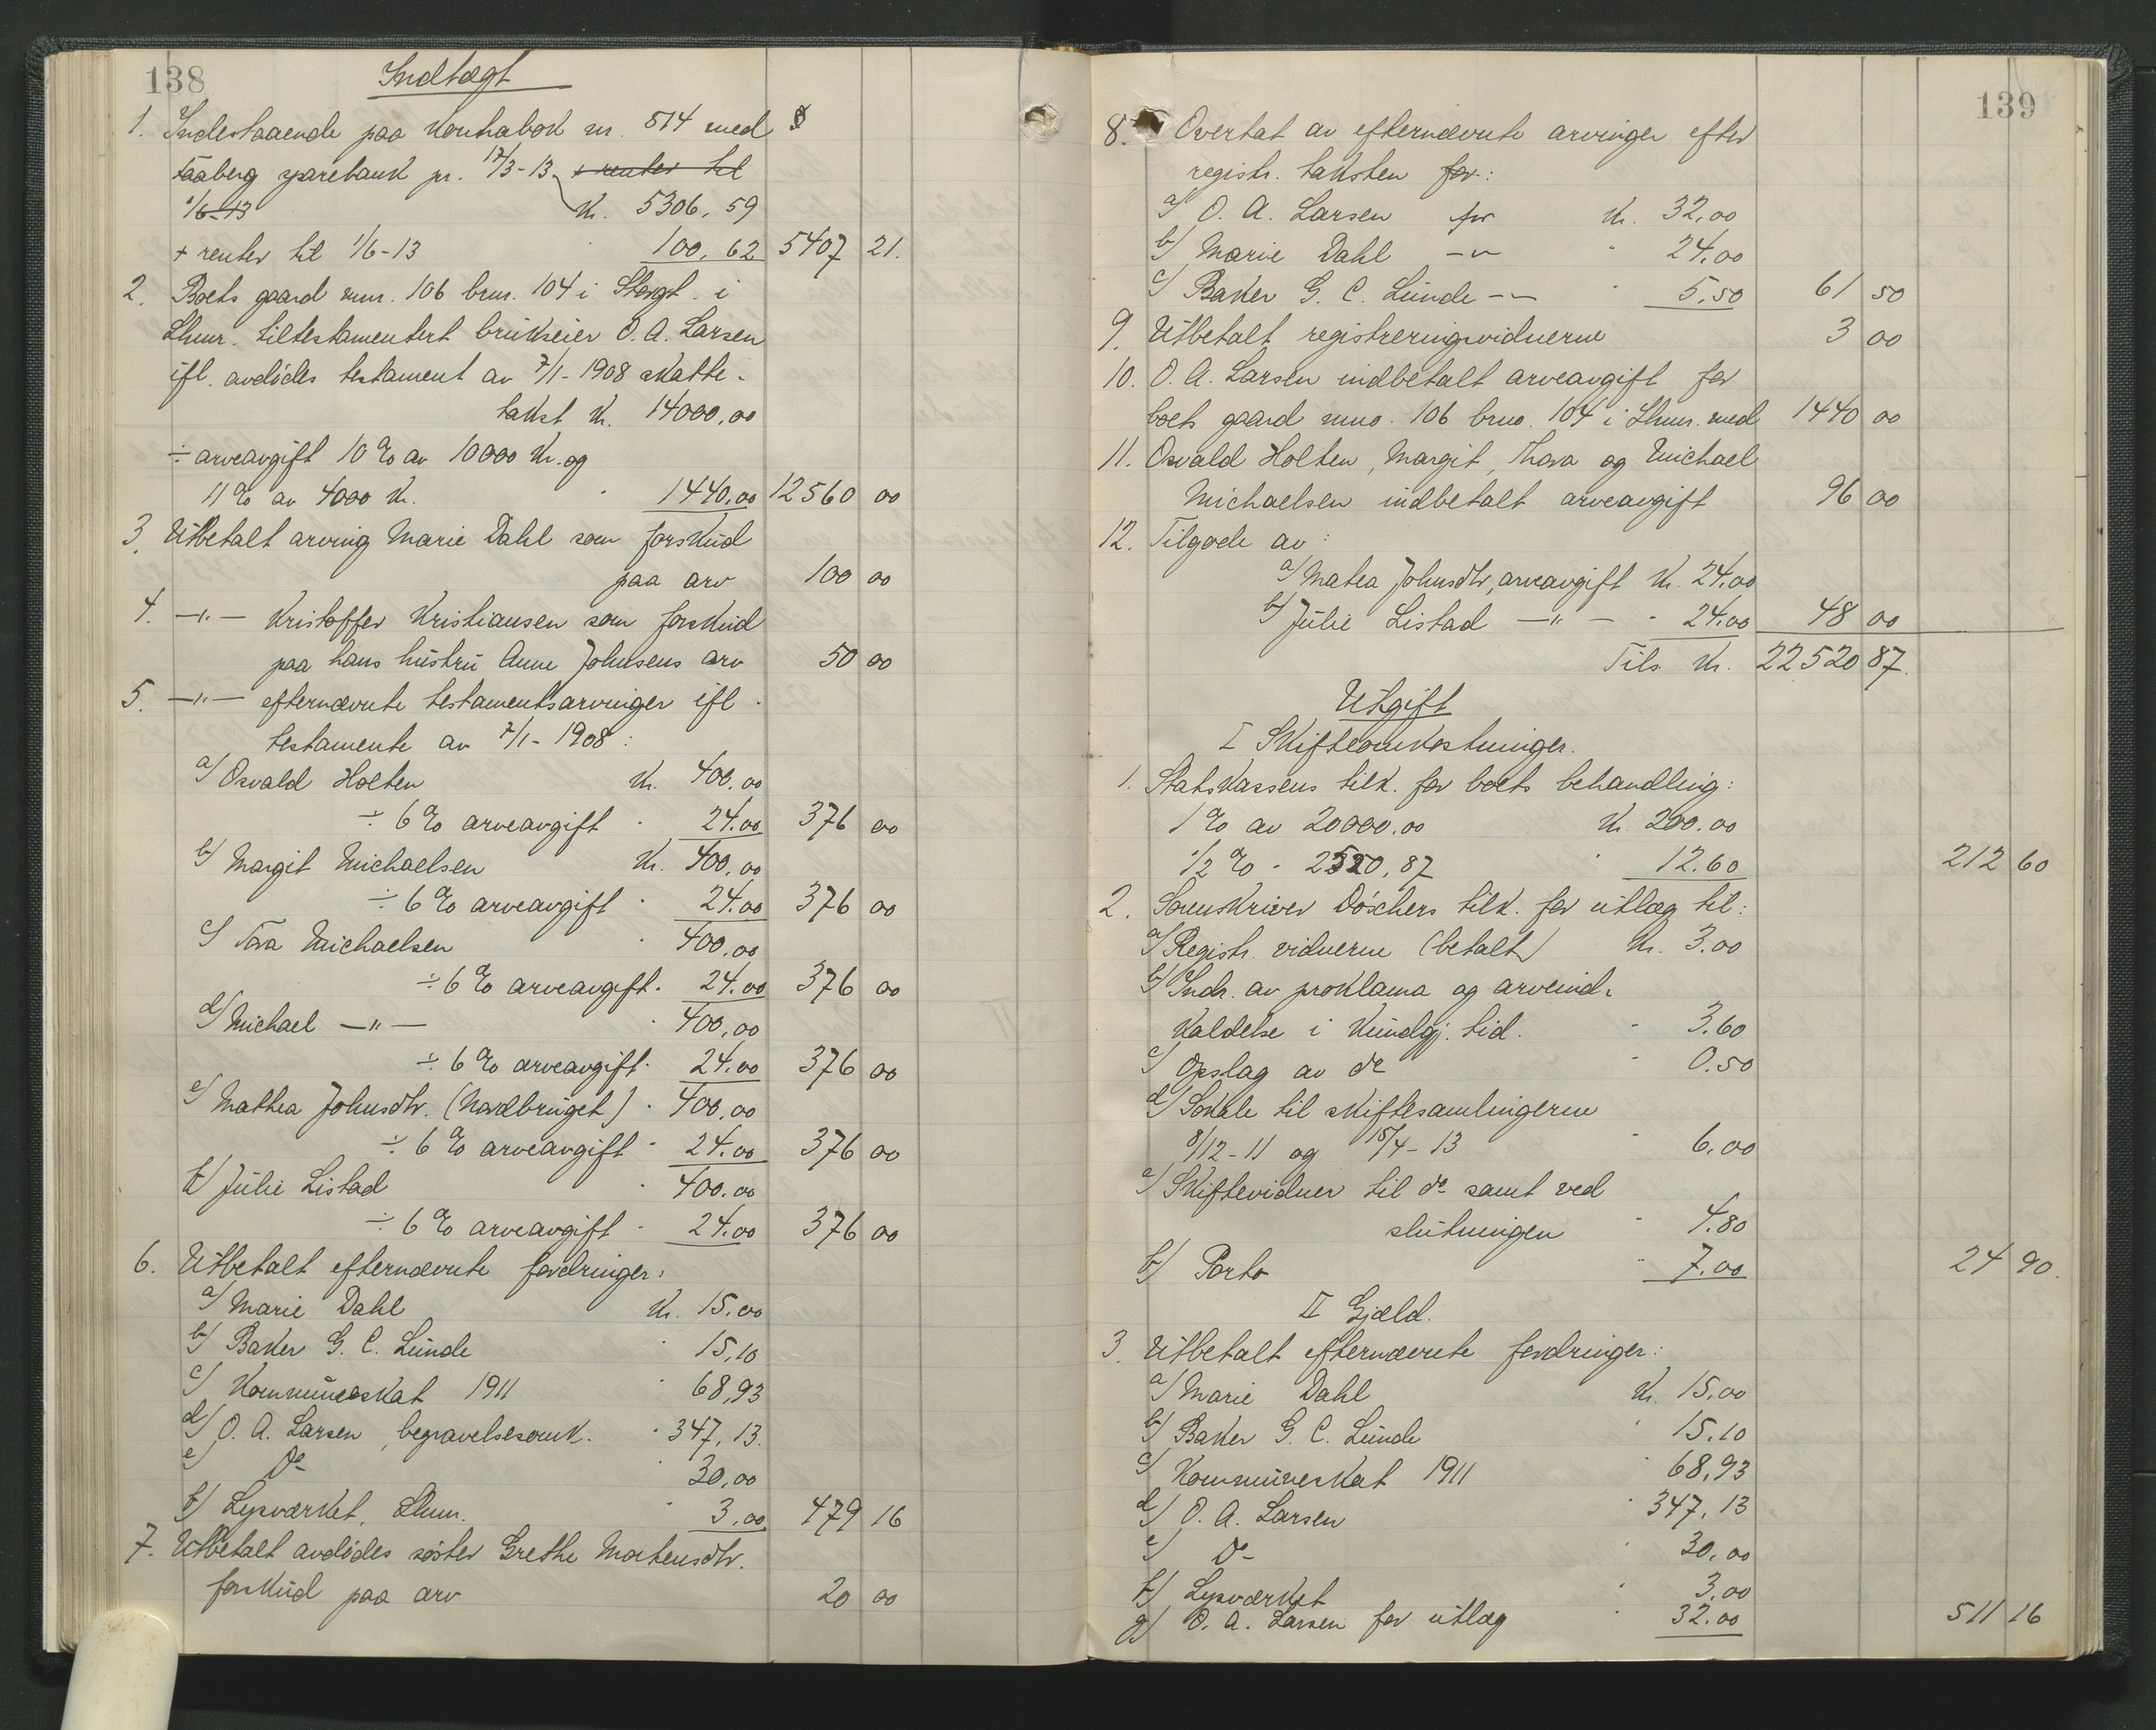 138
Indtægt
1. Indestaaende paa kontrabok nr. 514 med
Faaberg sparebank pr. 17/3-13 + renter til
1/6-13 Kr. 5306,59
+ renter til 1/6-13 " 100,62 5407 21.
2. Boets gaard mnr. 106 brnr. 104 i Storgt. i
Lhmr. tiltestamentert brukseier O. A. Larsen
ifl. avdødes testament av 7/1-1908 skatte-
takst Kr. 14000,00
÷ arveavgift 10 % av 10000 Kr. og
11 % av 4000 Kr. " 1440,00 12560 00
3. Utbetalt arving Marie Dahl som forskud
paa arv 100 00
4. —"— Kristoffer Kristiansen som forskud
paa hans hustru Anne Johnsens arv 50 00
5. —"— efternævnte testamentsarvinger ifl.
testamente av 7/1-1908:
a/ Osvald Holten Kr. 400,00
÷ 6 % arveavgift " 24.00 376 00
b/ Margit Michaelsen Kr. 400,00
÷ 6 % arveavgift " 24.00 376 00
c/ Tora Michaelsen " 400,00
÷ 6 % arveavgift " 24.00 376 00
d/ Michael —"— " 400,00
÷ 6 % arveavgift " 24.00 376 00
e/ Mathea Johnsdtr. (Nordbruget) " 400,00
÷ 6 % arveavgift " 24.00 376 00
f/ Julie Listad " 400.00
÷ 6 % arveavgift " 24.00 376 00
6. Utbetalt efternævnte fordringer:
a/ Marie Dahl Kr. 15,00
b/ Baker G. C. Lunde " 15,10
c/ Kommuneskat 1911 " 68,93
d/ O. A. Larsen, begravelsesomk. " 347,13.
e/ Do " 30,00
f/ Lysværket, Lhmr. " 3,00 479 16
7. Utbetalt avdødes søster Grethe Mortensdtr.
forskud paa arv 20 00
139
8. Overtat av efternævnte arvinger efter
registr. taksten for:
a/ O. A. Larsen for Kr. 32,00
b/ Marie Dahl —"— " 24,00
c/ Baker G. C. Lunde —"— " 5,50 61 50
9. Utbetalt registreringsvidnerne 3 00
10. O. A. Larsen indbetalt arveavgift for
boets gaard mno. 106 bruo. 104 i Lhmr. med 1440 00
11. Osvald Holten, Margit, Thora og Michael
Michaelsen indbetalt arveavgift 96 00
12. Tilgode av:
a/ Mathea Johnsdtr, arveavgift Kr. 24,00
b/ Julie Listad —"— " 24.00 48 00
Tils Kr. 22520 87.
Utgift
I Skifteomkostninger.
1. Statskassens tilk. for boets behandling:
1 % av 20000.00 Kr. 200.00
1/2 % " 2520,87 " 12.60 212 60
2. Sorenskriver Döschers tilk. for utlæg til:
a/ Registr. vidnerne (betalt) Kr. 3.00
b/ Indr. av proklama og arveind-
kaldelse i Kundgj. tid. " 3.60
c/ Opslag av do " 0.50
d/ Lokale til skiftesamlingerne
8/12-11 og 15/4-13 " 6,00
e/ Skiftevidner til do samt ved
slutningen " 4.80
f/ Porto " 7.00 24 90.
II Gjæld.
3. Utbetalt efternævnte fordringer:
a/ Marie Dahl Kr. 15,00
b/ Baker G. C. Lunde " 15.10
c/ Kommuneskat 1911 " 68,93
d/ O. A. Larsen " 347,13
e/ Do " 30,00
f/ Lysværket " 3,00
g/ O. A. Larsen for utlæg " 32.00 511 16